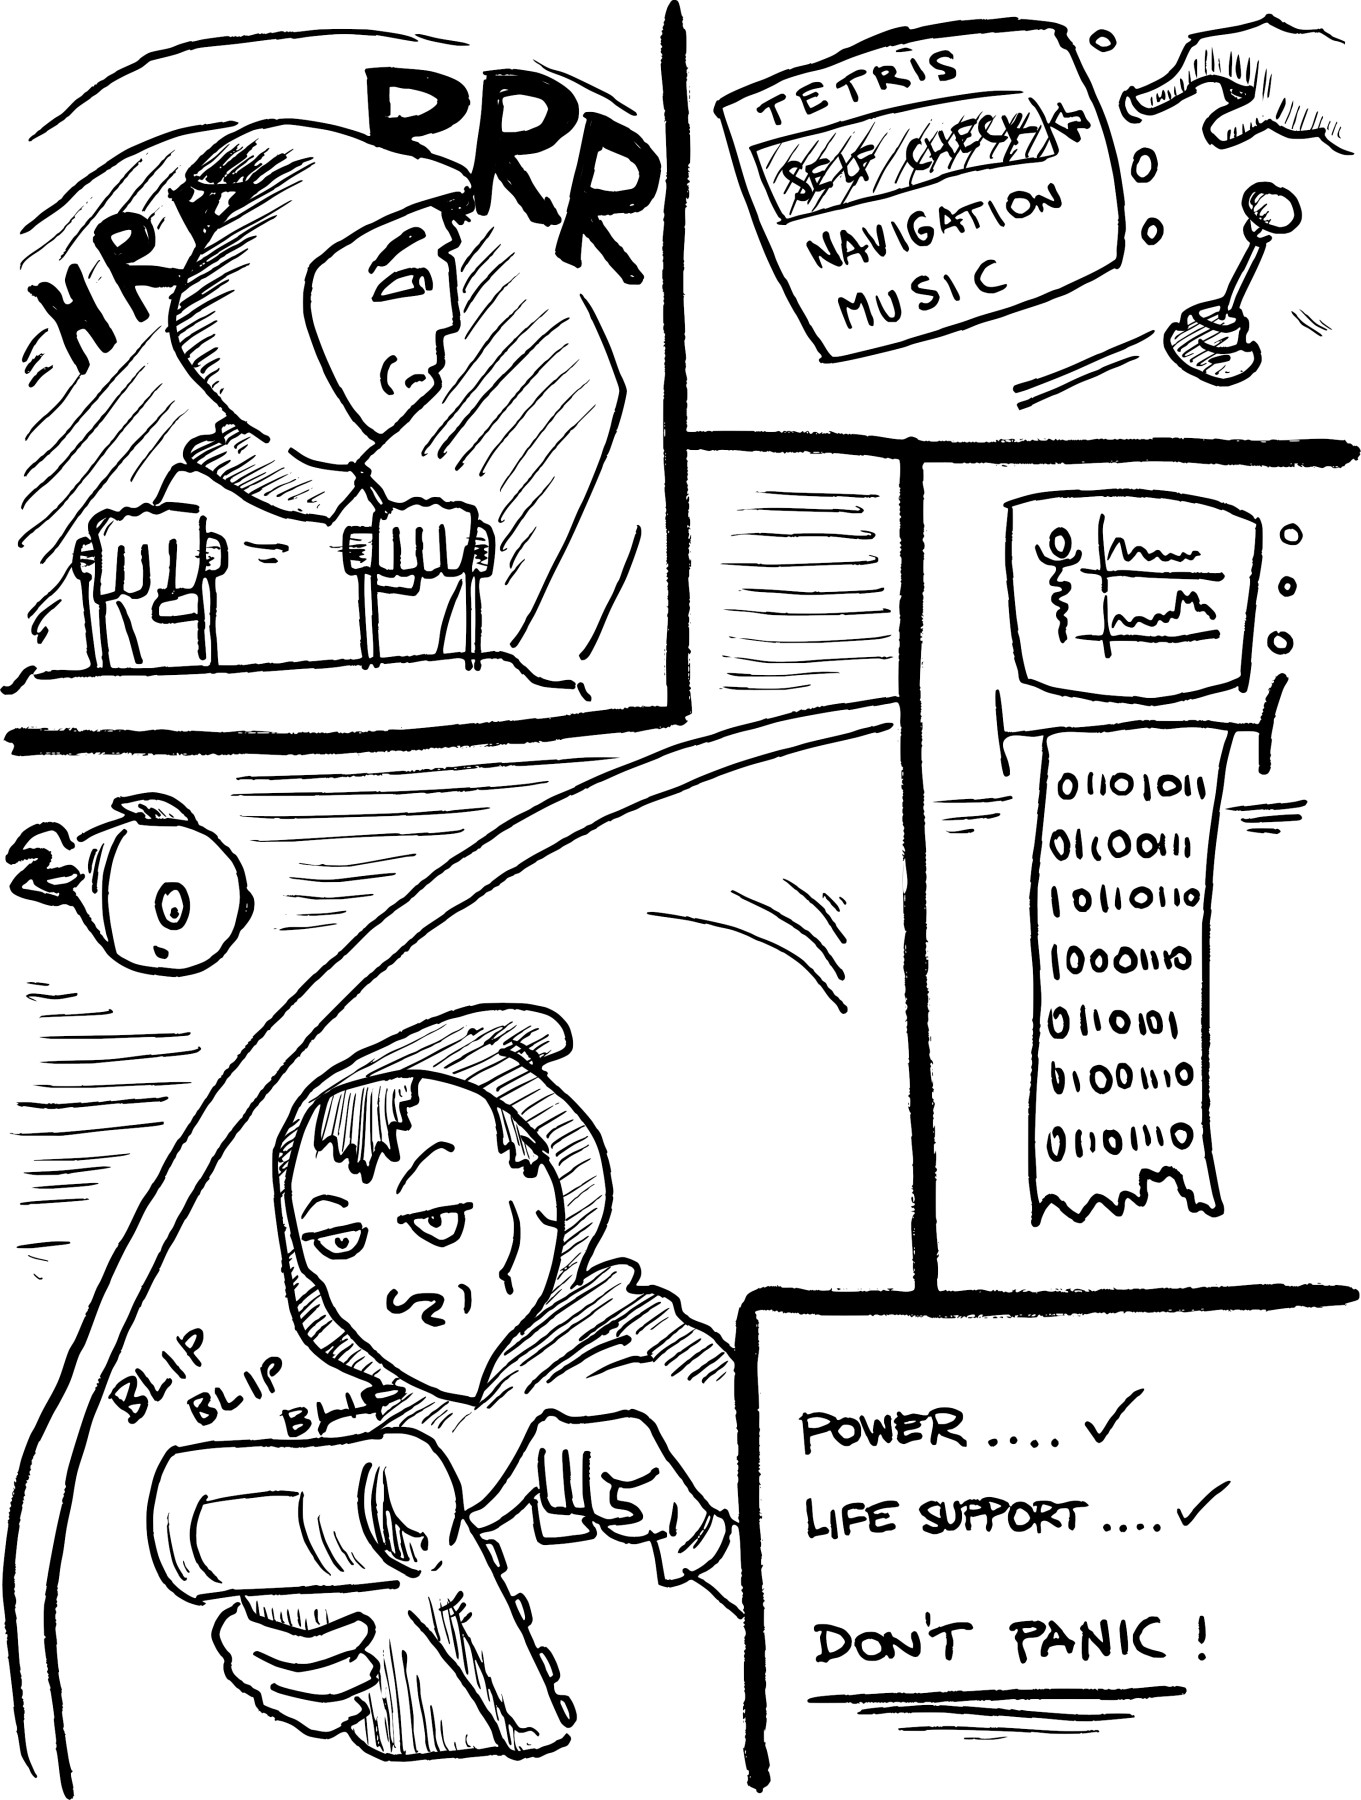 HRRRRR
TETRIS
SELF CHECK
NAVIGATION
MUSIC
01101011
01100111
10110110
10001110
0110101
01001110
01101110
BLIP
BLIP
BLIP
POWER .... ✓
LIFE SUPPORT .... ✓
DON'T PANIC !